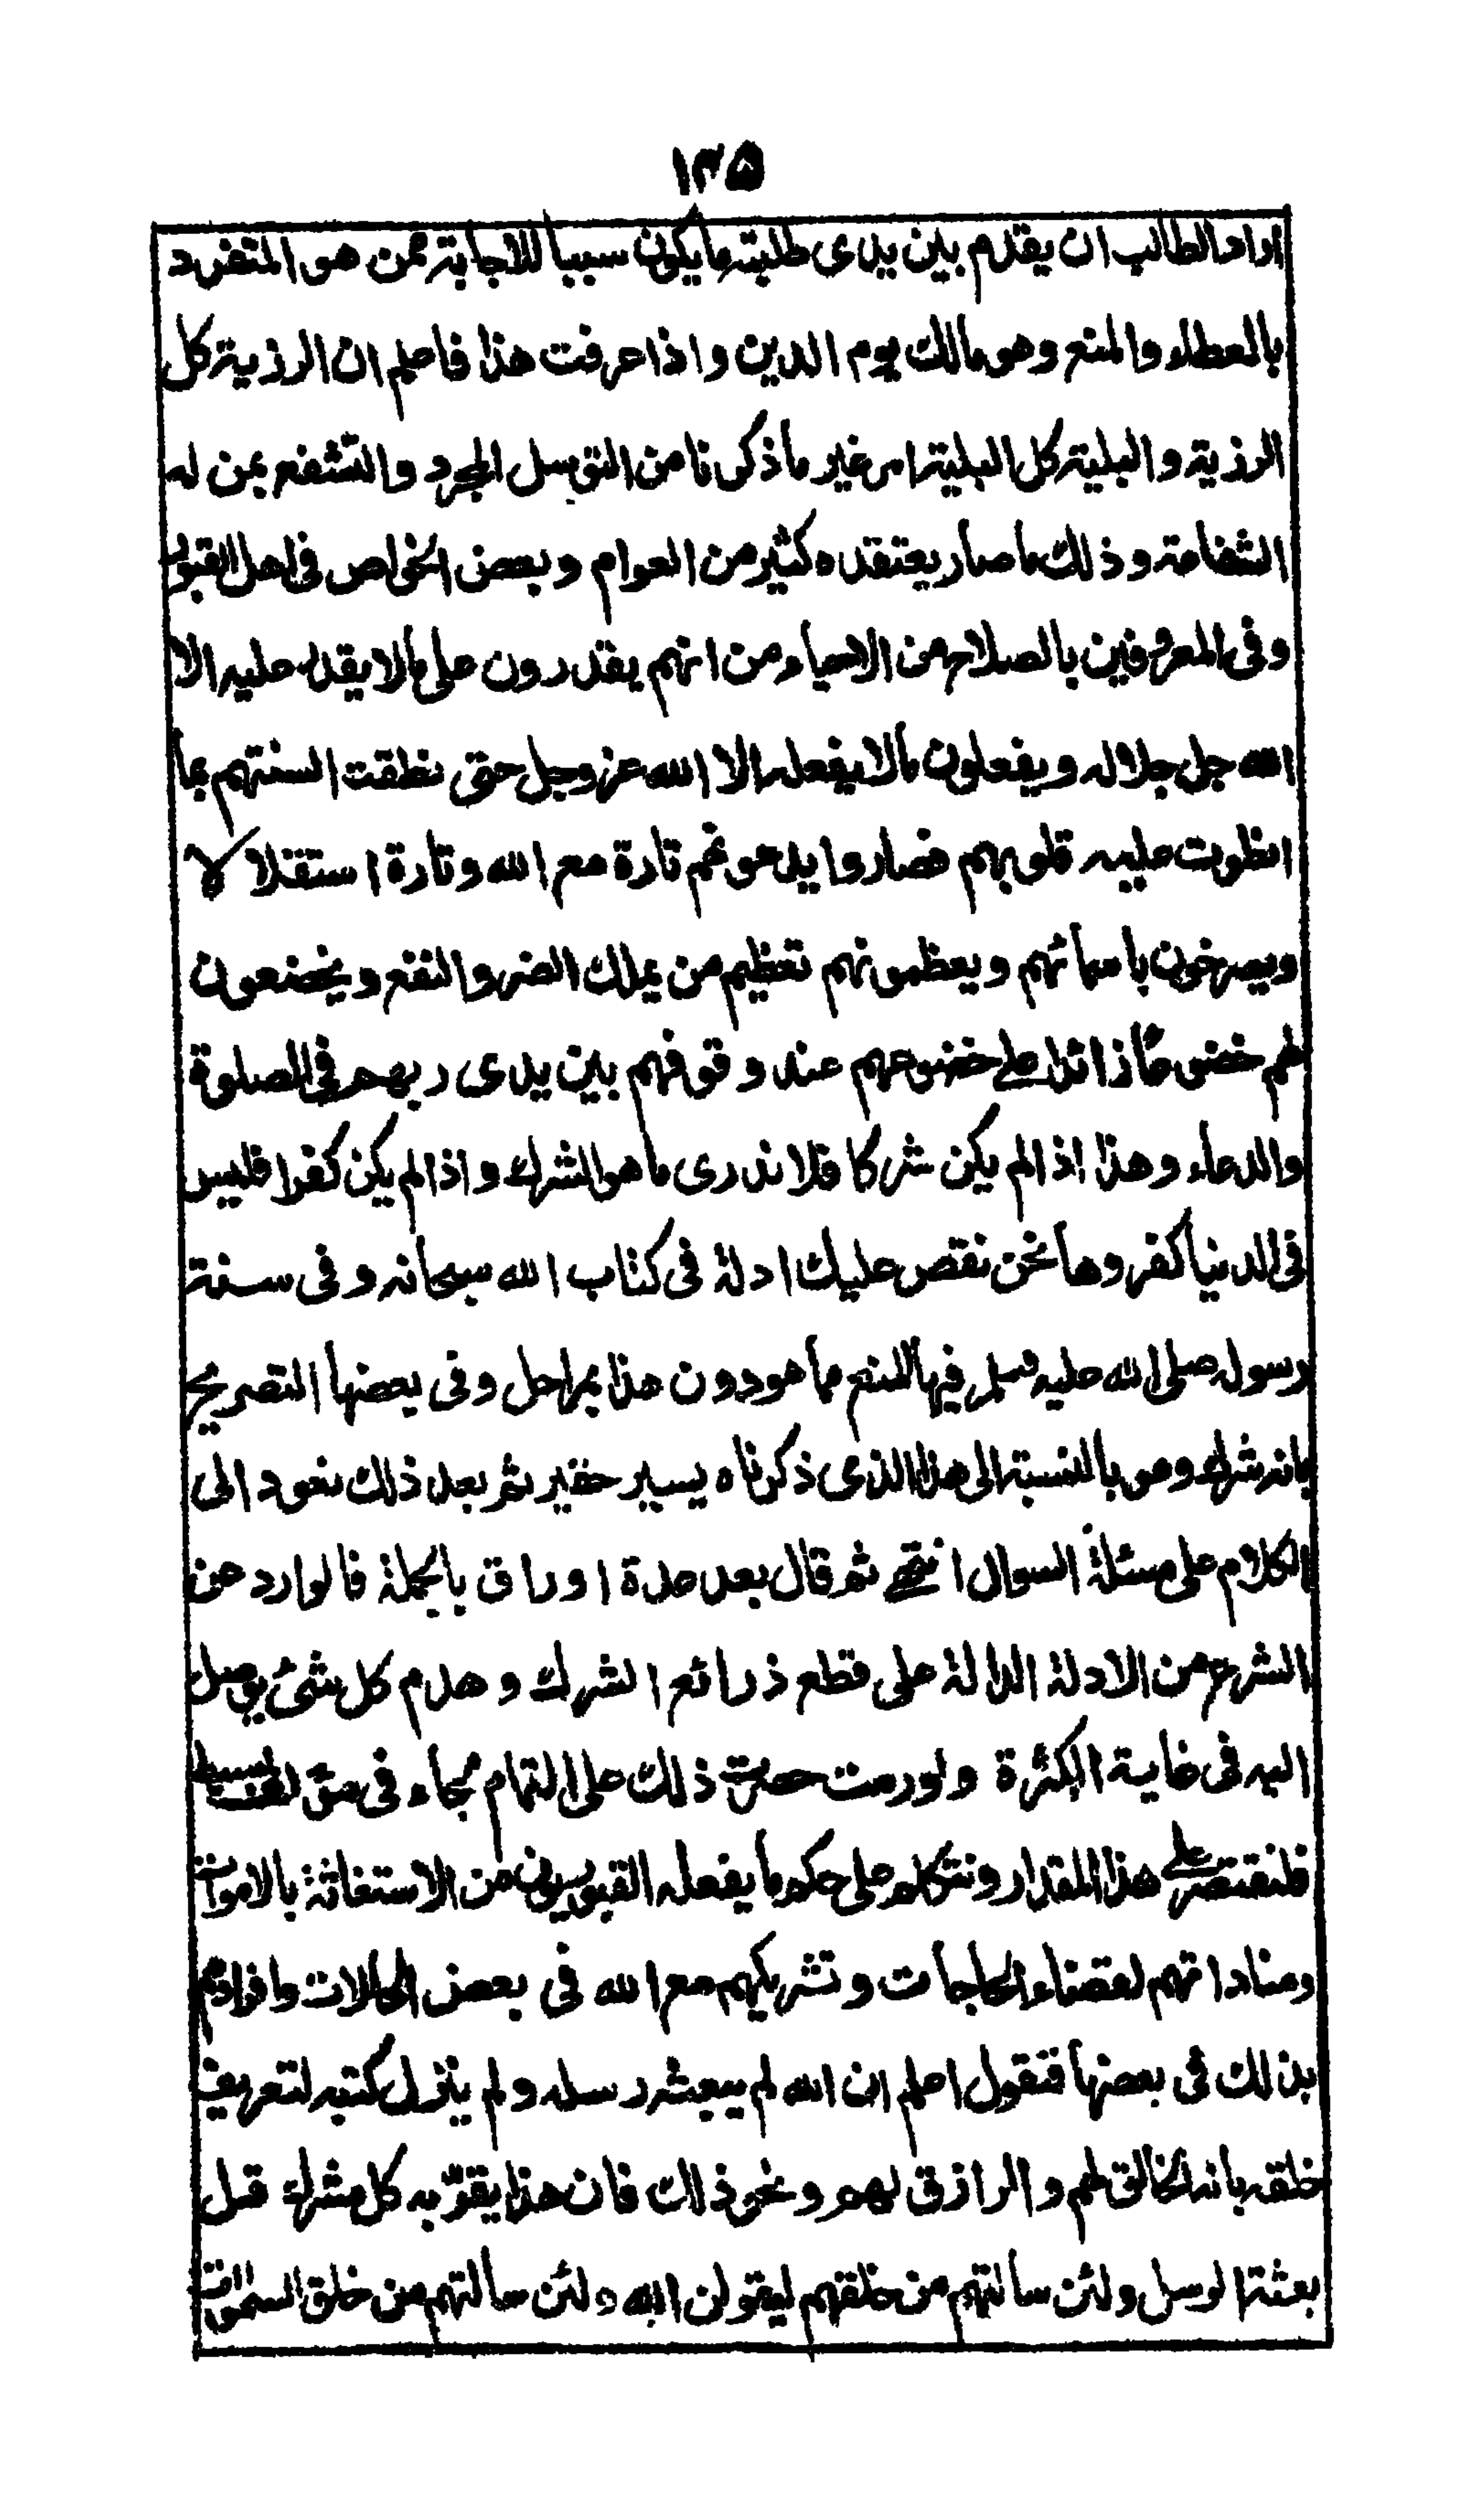 ١٣٥
اراد الطالب ان يقدم بين يدى طلبته ما يكون سببا للاجابة ممن هو المتفرد
بالعطاء والمنع وهو مالك يوم الدين واذا عرفت هذا فاعلم ان الرزية كل
الرزية والبلية كل البلية امر غير ما ذكرنا من التوسل المجرد والتشفع بمن له
الشفاعة وذلك ما صار يعتقده كثير من العوام وبعض الخواص فى اهل القبور
وفى المعروفين بالصلاح من الاحياء من انهم يقدرون على ما لا يقدر عليه الا
الله جل جلاله ويفعلون ما لا يفعله الا الله عز وجل حتى نطقت السنتهم بما
انطوت عليه قلوبهم فصاروا يدعونهم تارة مع الله وتارة استقلالا
ويصرخون باسمائهم ويعظمونهم تعظيم من يملك الضر والنفع ويخضعون
لهم خضوعا زائدا على خضوعهم عند وقوفهم بين يدى ربهم فى الصلوة
والدعاء وهذا اذا لم يكن شركا فلا ندرى ما هو الشرك واذا لم يكن كفرا فليس
فى الدنيا كفر وها نحن نقص عليك ادلة فى كتاب الله سبحانه وفى سنة
رسوله صلى الله عليه وسلم فيها المنع مما هو دون هذا بمراحل وفى بعضها التصريح
بانه شرك وهو بالنسبة الى هذا الذى ذكرناه يسير حقير ثم بعد ذلك نعود الى
الكلام على مسئلة السوال انتهى ثم قال بعد عدة اوراق بالجملة فالوارد عن
الشرع من الادلة الدالة على قطع ذرائع الشرك وهدم كل شئ يوصل
اليه فى غاية الكثرة ولو رمت حصر ذلك على التمام لجاء فى مؤلف بسيط
فلنقتصر على هذا المقدار ونتكلم على حكم ما يفعله القبوريون من الاستغاثة بالاموات
ومناداتهم لقضاء الحاجات وتشريكهم مع الله فى بعض الحالات وافرادهم
بذلك فى بعضها فنقول اعلم ان الله لم يبعث رسله ولم ينزل كتبه لتعريف
خلقه بانه الخالق لهم والرازق لهم ونحو ذلك فان هذا يقر به كل مشرك قبل
بعثة الرسل ولئن سالتهم من خلقهم ليقولن الله ولئن سالتهم من خلق السموات